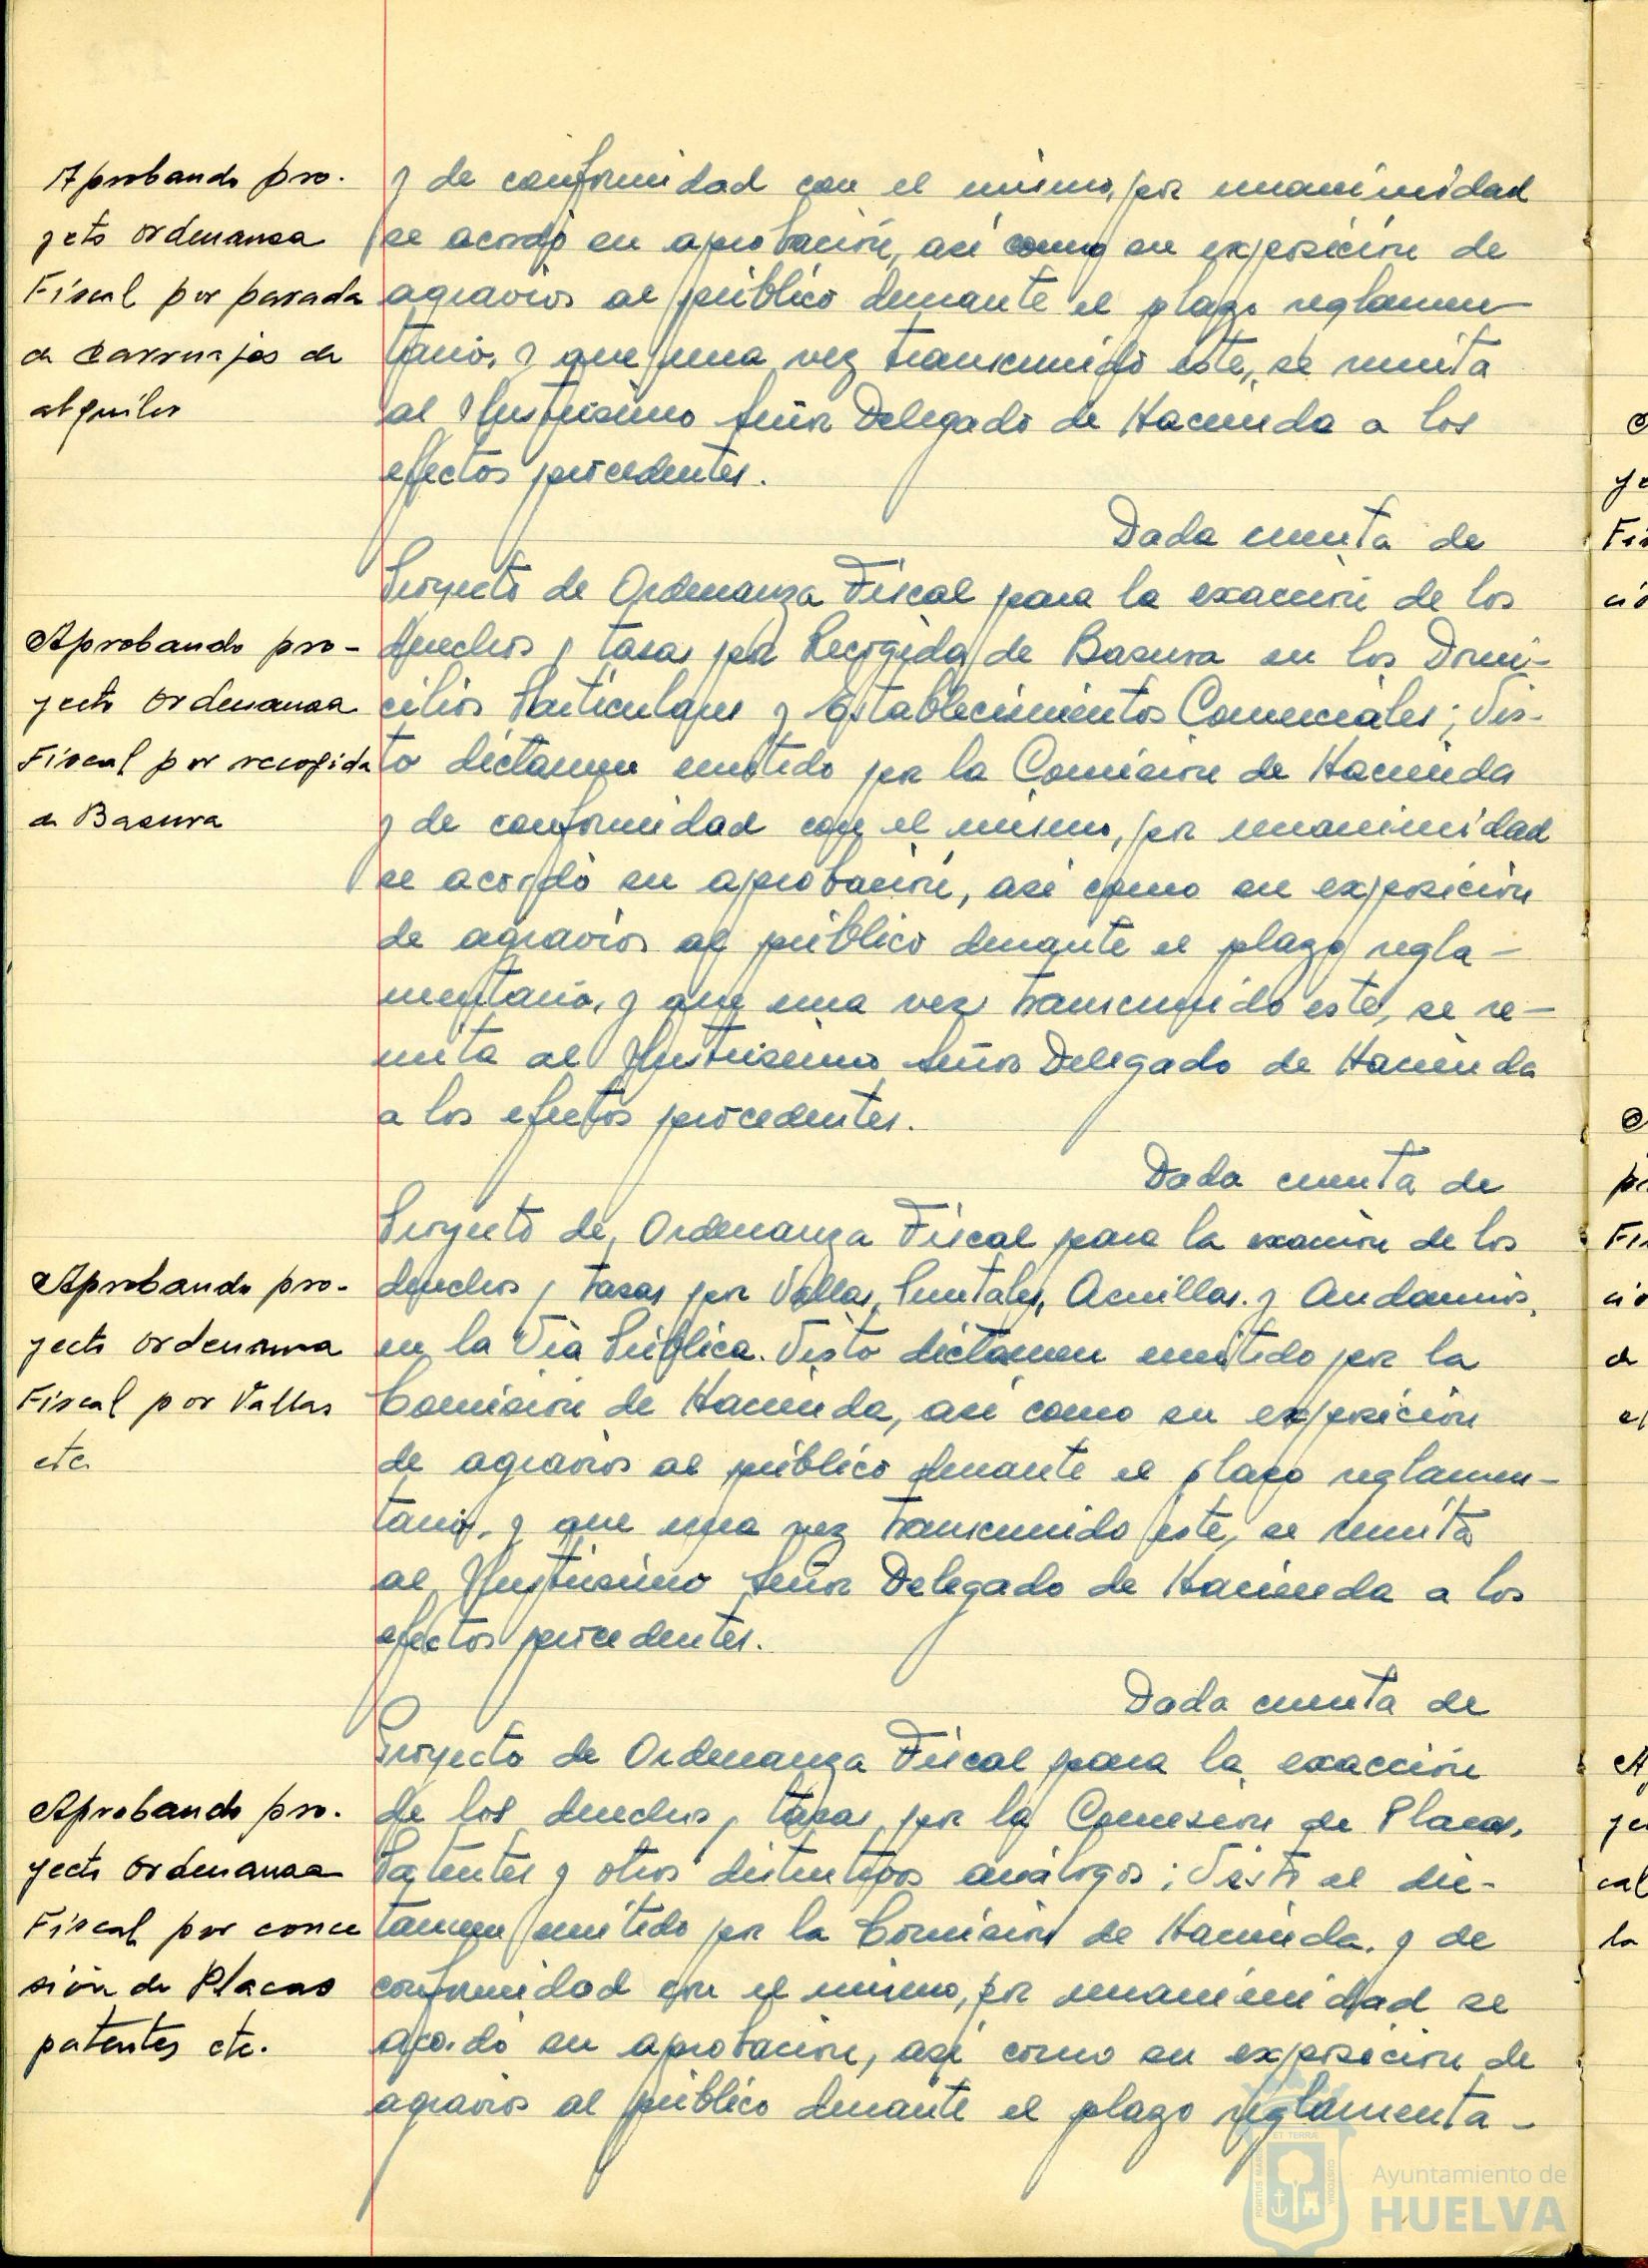 Aprobando pro-
yeto ordenanza
Fiscal por parada
de carruajes de
alquiler
y de conformidad con el mismo, por unanimidad
se acordó su aprobación, así como su exposición de
agravios al público durante el plazo reglamen-
tario, y que una vez transcurrido este, se remita
al Ilustrisimo Señor Delegado de Hacienda a los
efectos procedentes.
Dada cuenta de
Proyecto de Ordenanza Fiscal para la exacción de los
Aprobando pro-
yecto ordenanza
Fiscal por recogida
de Basura
derechos y tasas por Recogida de Basura en los Domi-
cilios Particulares y Establecimientos Comerciales; Vis-
to dictamen emitido por la Comisión de Hacienda
y de conformidad con el mismo, por unanimidad
se acordó su aprobación, así como su exposición
de agravios al público durante el plazo regla-
mentario, y que una vez transcurrido este, se re-
mita al Ilustrisimo Señor Delegado de Hacienda
a los efectos procedentes.
Dada cuenta de
Proyecto de Ordenanza Fiscal para la exacción de los
Aprobando pro-
yecto ordenanza
Fiscal por Vallas
etc.
derechos y tasas por Vallas, Puntales, Asnillas. y Andamios,
en la Vía Pública. Visto dictamen emitido por la
Comisión de Hacienda, así como su exposición
de agravios al público durante el plazo reglamen-
tario, y que una vez transcurrido este, se remita
al Ilustrisimo Señor Delegado de Hacienda a los
efectos procedentes.
Dada cuenta de
Proyecto de Ordenanza Fiscal para la exacción
Aprobando pro-
yecto ordenanza
Fiscal por conce
sión de Placas
patentes etc.
de los derechos y tasas por la Concesión de Placas,
Patentes y otros distintivos análogos; Visto el dic-
tamen emitido por la Comisión de Hacienda. y de
conformidad con el mismo, por unanimidad se
acordó su aprobación, así como su exposición de
agravios al público durante el plazo reglamenta-
Ayuntamiento de
HUELVA